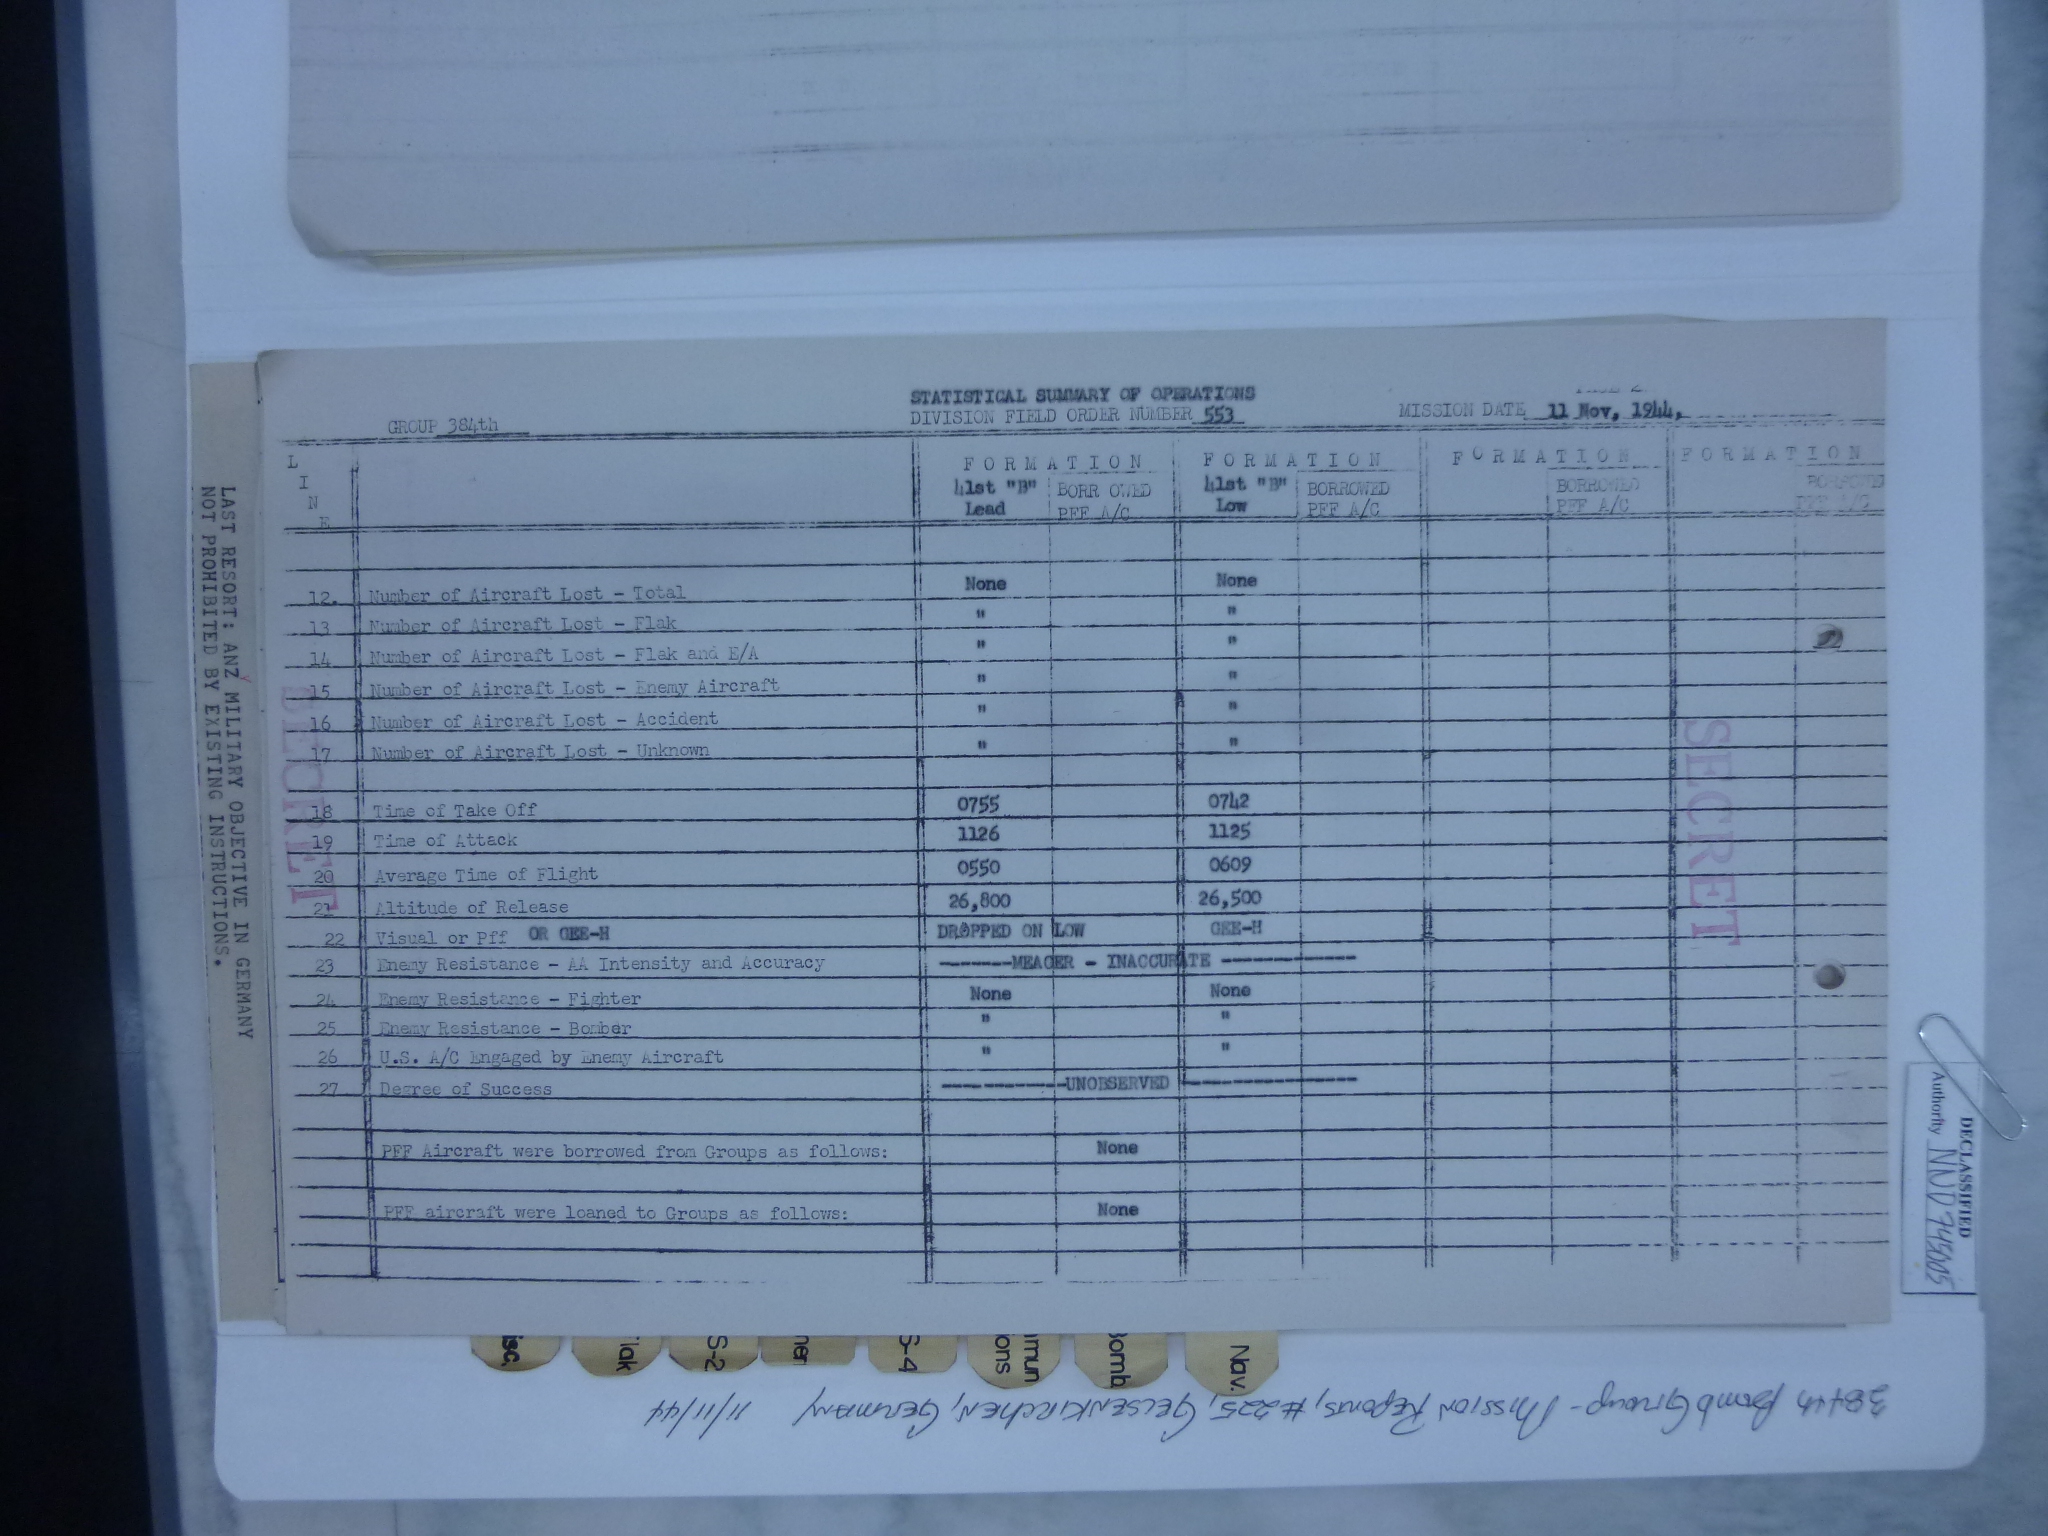 STATISTICAL SUMMARY OF OPERATIONS
GROUP 384th DIVISION FIELD ORDER NUMBER 553 MISSION DATE 11 Nov, 1944,
LINE
FORMATION FORMATION FORMATION FORMATION
41st "B" Lead BORROWED PFF A/C 41st "B" Low BORROWED PFF A/C BORROWED PFF A/C BORROWED PFF A/C
12. Number of Aircraft Lost - Total None None
13 Number of Aircraft Lost - Flak " "
14 Number of Aircraft Lost - Flak and E/A " "
15 Number of Aircraft Lost - Enemy Aircraft " "
16 Number of Aircraft Lost - Accident " "
17 Number of Aircraft Lost - Unknown " "
18 Time of Take Off 0755 0742
19 Time of Attack 1126 1125
20 Average Time of Flight 0550 0609
21 Altitude of Release 26,800 26,500
22 Visual or Pff OR GEE-H DROPPED ON LOW GEE-H
23 Enemy Resistance - AA Intensity and Accuracy -------MEAGER - INACCURATE -------------
24 Enemy Resistance - Fighter None None
25 Enemy Resistance - Bomber " "
26 U.S. A/C Engaged by Enemy Aircraft " "
27 Degree of Success ------------UNOBSERVED -----------------
PFF Aircraft were borrowed from Groups as follows: None
PFF aircraft were loaned to Groups as follows: None
SECRET
SECRET
LAST RESORT: ANY MILITARY OBJECTIVE IN GERMANY
NOT PROHIBITED BY EXISTING INSTRUCTIONS.
DECLASSIFIED
Authority NND 745005
isc.
lak
S-2
ner
S-4
mmun
ions
Bomb
Nav.
384th Bomb Group - Mission Reports, #225, Gelsenkirchen, Germany 11/11/44